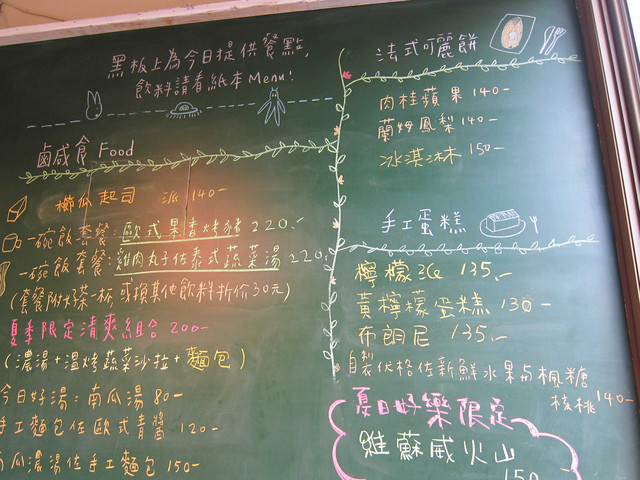 黑板上為今日提供餐點,
飲料請看紙本Menu!
鹹食 Food
櫛瓜起司 派 140-
一碗飯套餐:歐式果香烤豬 220.-
一碗飯套餐:雞肉丸子佐泰式蔬菜湯 220
(套餐附好茶一杯, 或換其他飲料折价30元)
夏季限定清爽組合 200-
(濃湯+溫烤蔬菜沙拉+麵包)
今日好湯:南瓜湯 80-
手工麵包佐歐式青醬 120-
南瓜濃湯佐手工麵包 150-
法式可麗餅
肉桂蘋果 140-
蘭姆鳳梨 140-
冰淇淋 150-
手工蛋糕
檸檬 135.-
黃檸檬蛋糕 130-
布朗尼 135.-
自製优格佐新鮮水果与楓糖
核桃 140-
夏日好樂限定
維蘇威火山
150